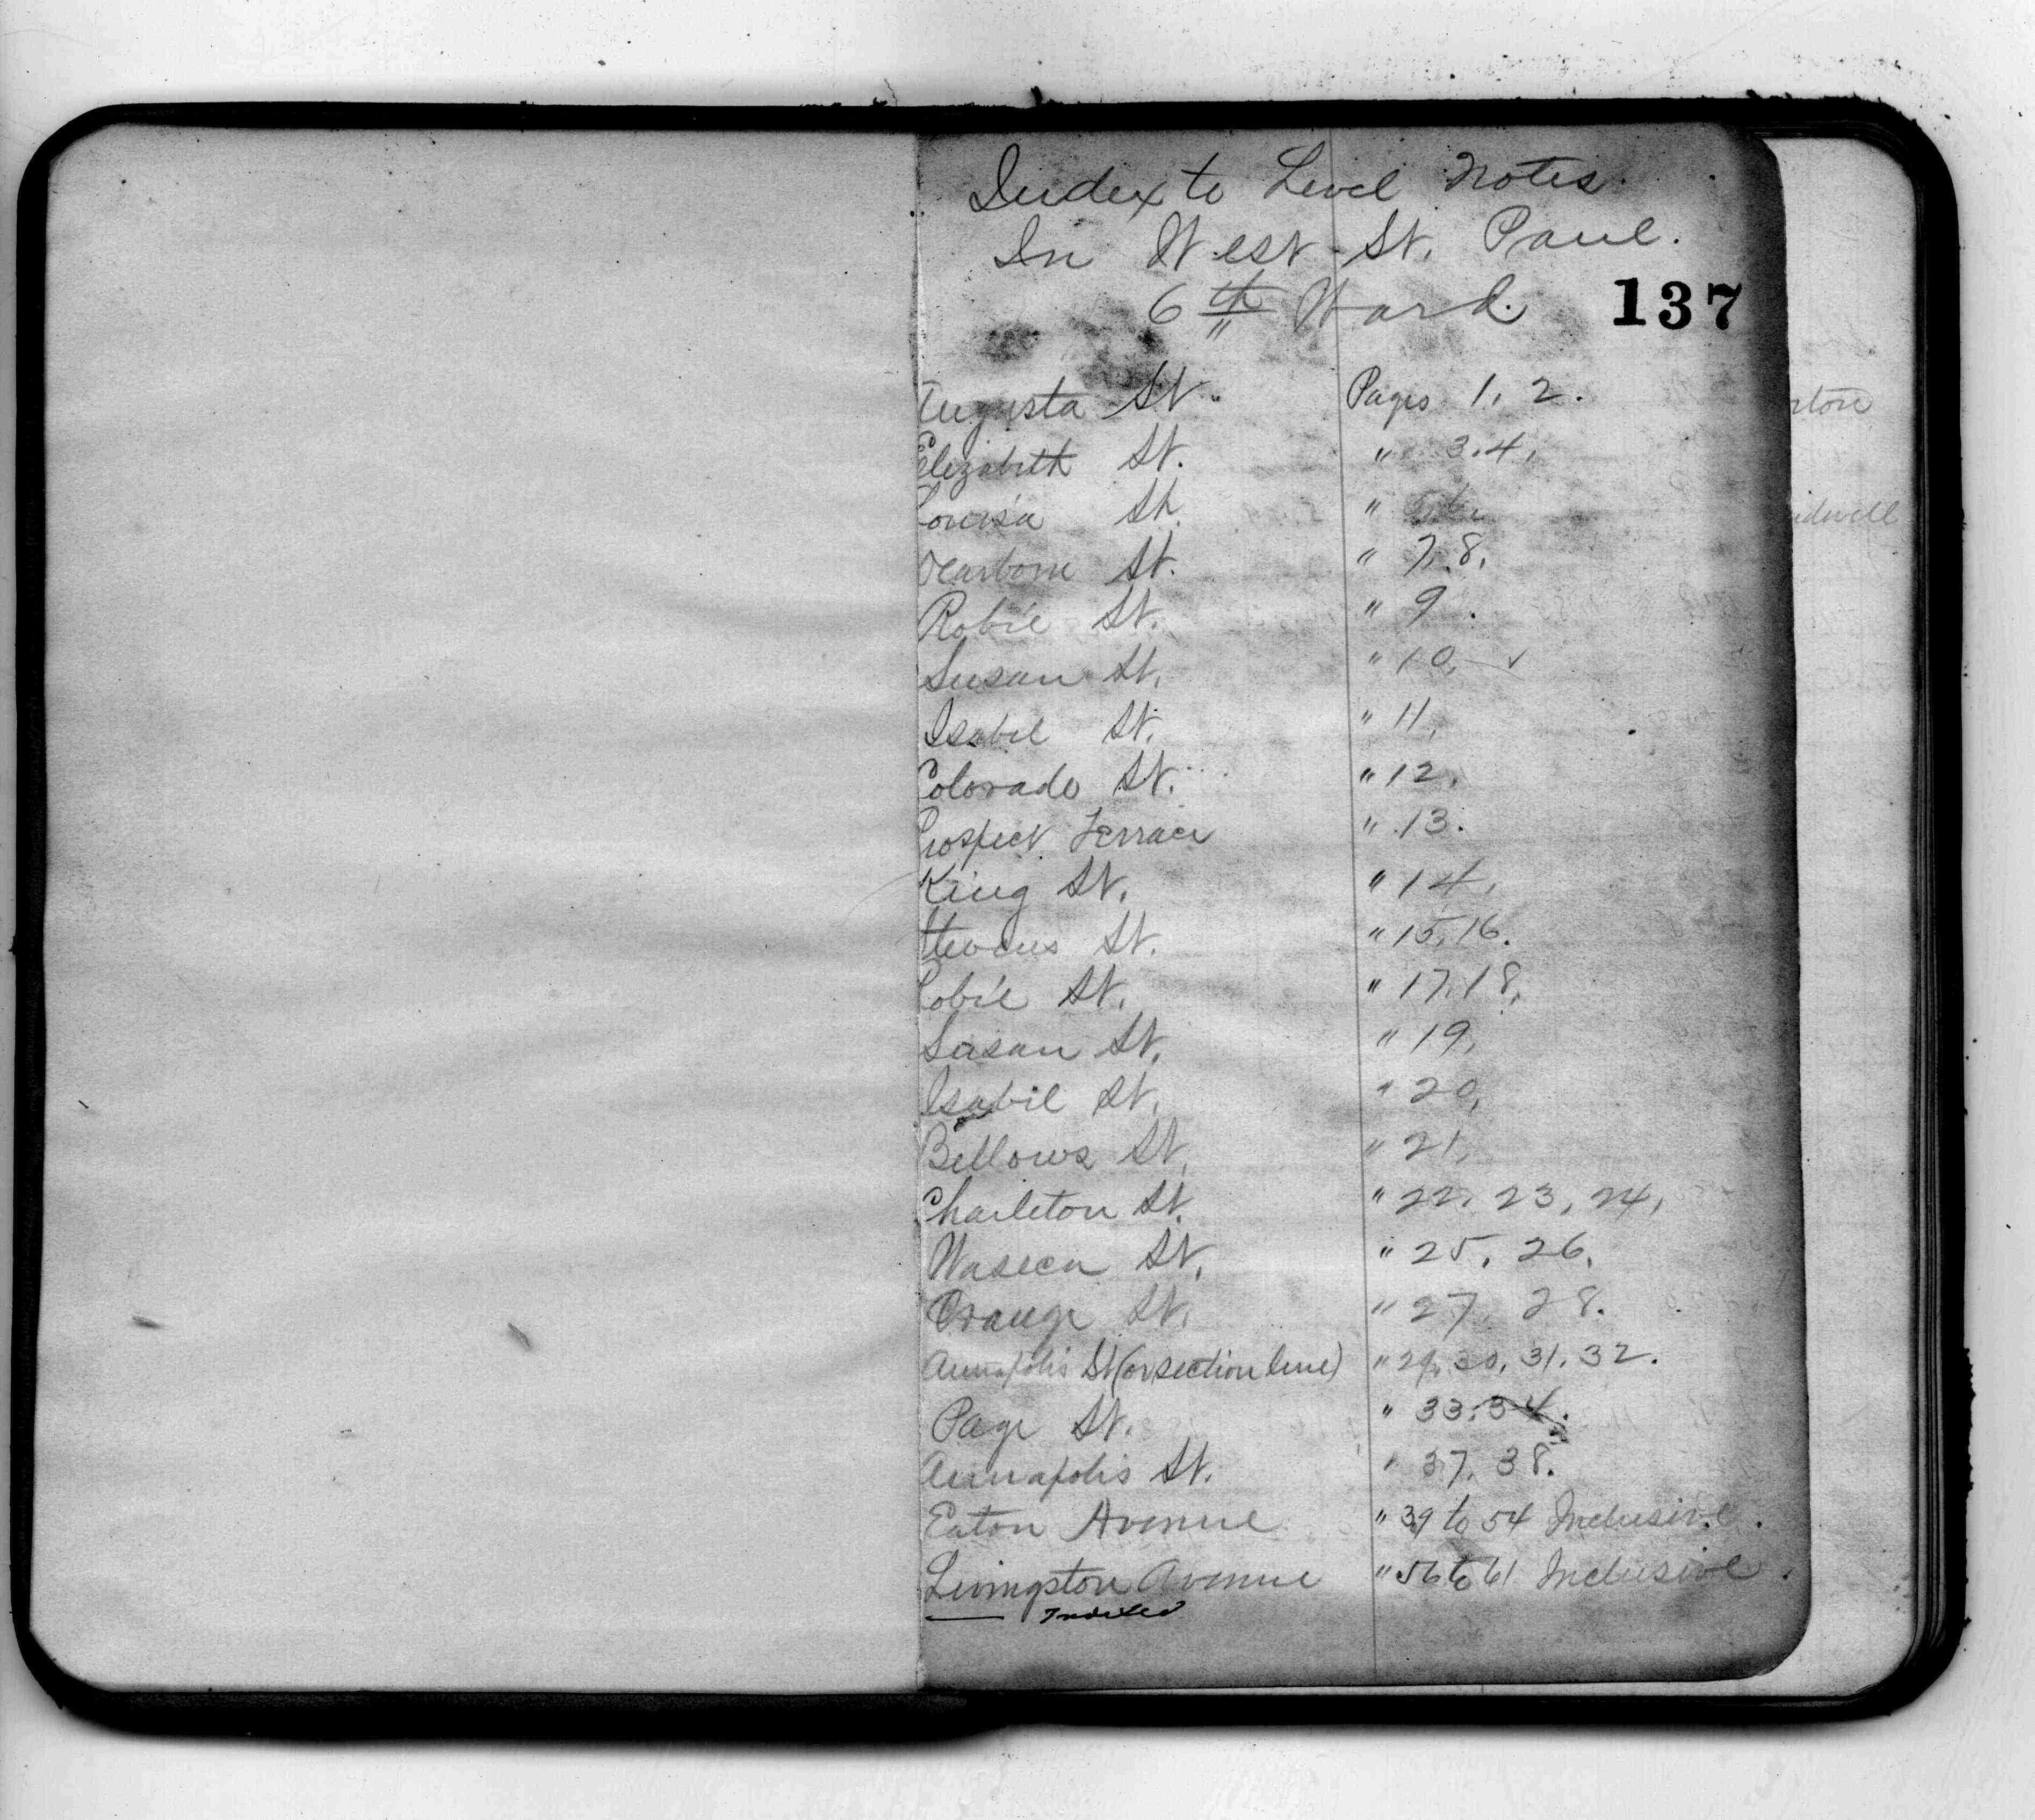 Index to Level Notes.
In West St. Paul.
6th Ward.
137
Augusta St. Pages 1, 2.
Elizabeth St. " 3.4.
Louisa St. " 5,6.
Dearborn St. " 7,8.
Robie St. " 9.
Susan St. " 10, ✓
Isabel St. " 11,
Colorado St. " 12.
Prospect Terrace " 13.
King St. " 14,
Stevens St. " 15,16.
Robie St. " 17,18,
Susan St. " 19,
Isabel St. " 20,
Bellows St. " 21,
Charleton St. " 22, 23, 24,
Waseca St. " 25, 26,
Orange St. " 27, 28.
Annapolis St (or section line) " 29, 30, 31, 32.
Page St. " 33,34.
Annapolis St. " 37, 38.
Eaton Avenue " 39 to 54 Inclusive.
Livingston Avenue " 56 to 61 Inclusive.
Indexed